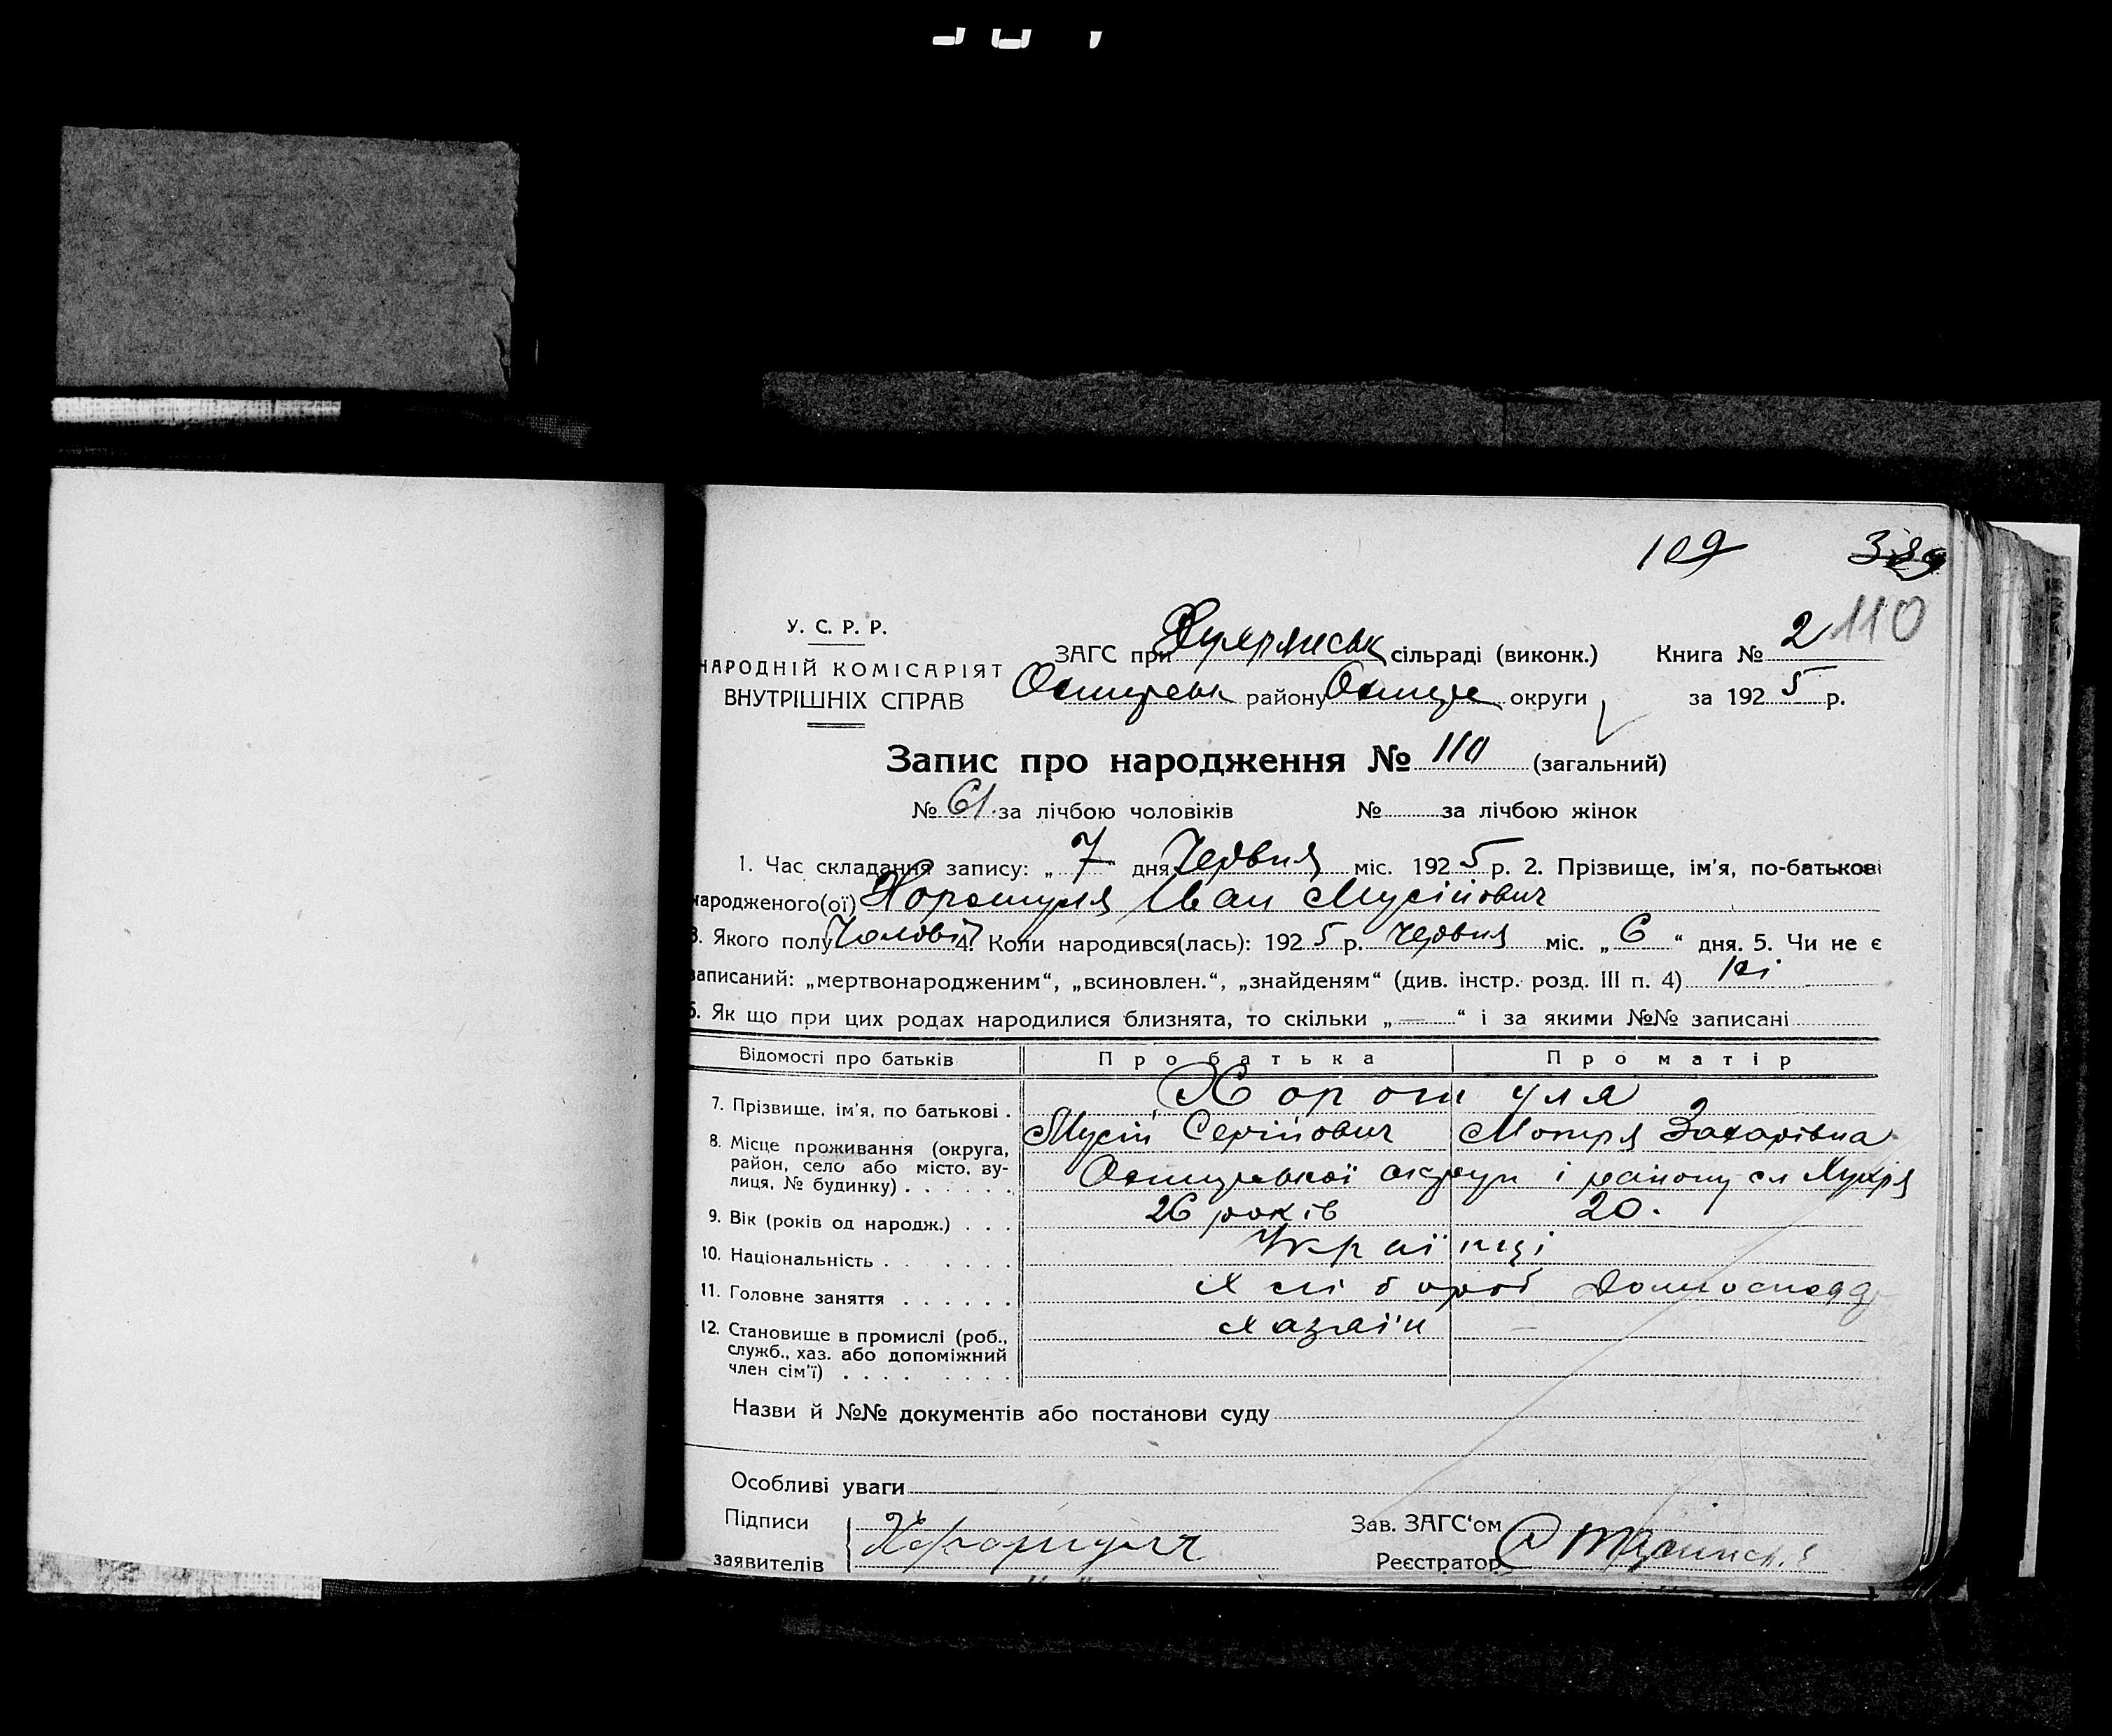 109 389
110
У. С. Р. Р.
НАРОДНІЙ КОМІСАРІЯТ
ВНУТРІШНІХ СПРАВ
ЗАГС при сільраді (виконк.) Книга № 2
району округи за 1925 р.
Запис про народження № 110 (загальний)
№ 61 за лічбою чоловіків № за лічбою жінок
1. Час складання запису: „ 7 дня Червня міс. 1925 р. 2. Прізвище, ім'я, по-батькові
народженого(ої) Хорошуля Іван Мусійович
3. Якого полу 4. Коли народився(лась): 1925 р. Червня міс. „ 6 “ дня. 5. Чи не є
записаний: „мертвонародженим“, „всиновлен.“, „знайденям“ (див. інстр. розд. III п. 4) Ні
6. Як що при цих родах народилися близнята, то скільки „ — “ і за якими №№ записані
Відомості про батьків Про батька Про матір
7. Прізвище, ім'я, по батькові . Хорошуля
Мусій Сергійович Мотря Захарівна
8. Місце проживання (округа,
район, село або місто, ву-
лиця, № будинку) . . . . . . Охтирської округи і району
9. Вік (років од народж.) . . . 26 років 20.
10. Національність . . . . . . Українці
11. Головне заняття . . . . . . Хлібороб
12. Становище в промислі (роб., Хазяїн —
служб., хаз. або допоміжний
член сім'ї) . . . . . . . .
Назви й №№ документів або постанови суду
Особливі уваги
Підписи
заявителів Хорошуля
Зав. ЗАГС'ом
Реєстратор